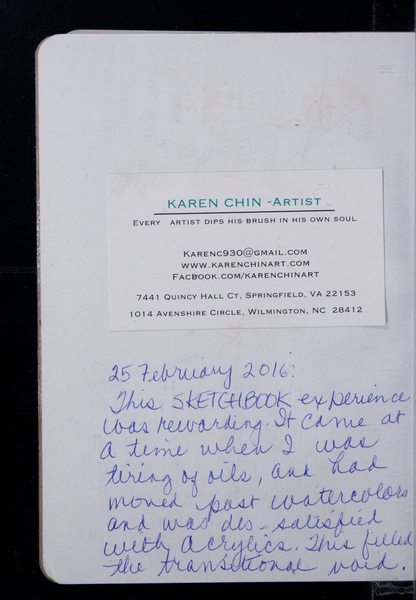 KAREN CHIN -ARTIST
EVERY ARTIST DIPS HIS BRUSH IN HIS OWN SOUL
KARENC930@GMAIL.COM
WWW.KARENCHINART.COM
FACBOOK.COM/KARENCHINART
7441 QUINCY HALL CT, SPRINGFIELD, VA 22153
1014 AVENSHIRE CIRCLE, WILMINGTON, NC 28412
25 February 2016:
This SKETCHBOOK experience
was rewarding. It came at
a time when I was
tiring of oils, and had
moved past watercolors
and was dis-satisfied
with Acrylics. This filled
the transitional void.